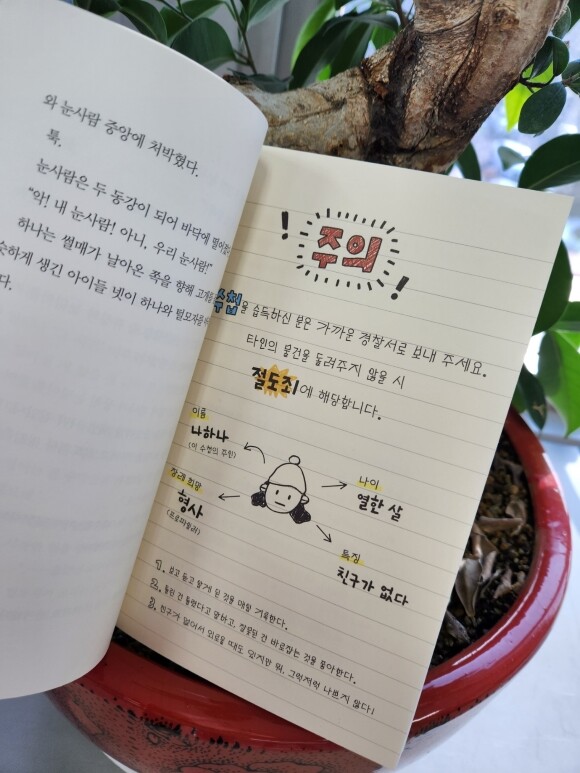 와 눈사람 중앙에 처박혔다.
툭.
눈사람은 두 동강이 되어 바닥에 떨어졌
"악! 내 눈사람! 아니, 우리 눈사람!"
하나는 썰매가 날아온 쪽을 향해 고개를
슷하게 생긴 아이들 넷이 하나와 털모자를
다.
! 주의 !
수첩을 습득하신 분은 가까운 경찰서로 보내 주세요.
타인의 물건을 돌려주지 않을 시
절도죄에 해당합니다.
이름
나하나
(이 수첩의 주인)
장래 희망
형사
(프로파일러)
나이
열한 살
특징
친구가 없다
1. 보고 듣고 알게 된 것을 매일 기록한다.
2. 틀린 건 틀렸다고 말하고, 잘못된 건 바로잡는 것을 좋아한다.
3. 친구가 없어서 외로울 때도 있지만 뭐, 그럭저럭 나쁘지 않다!